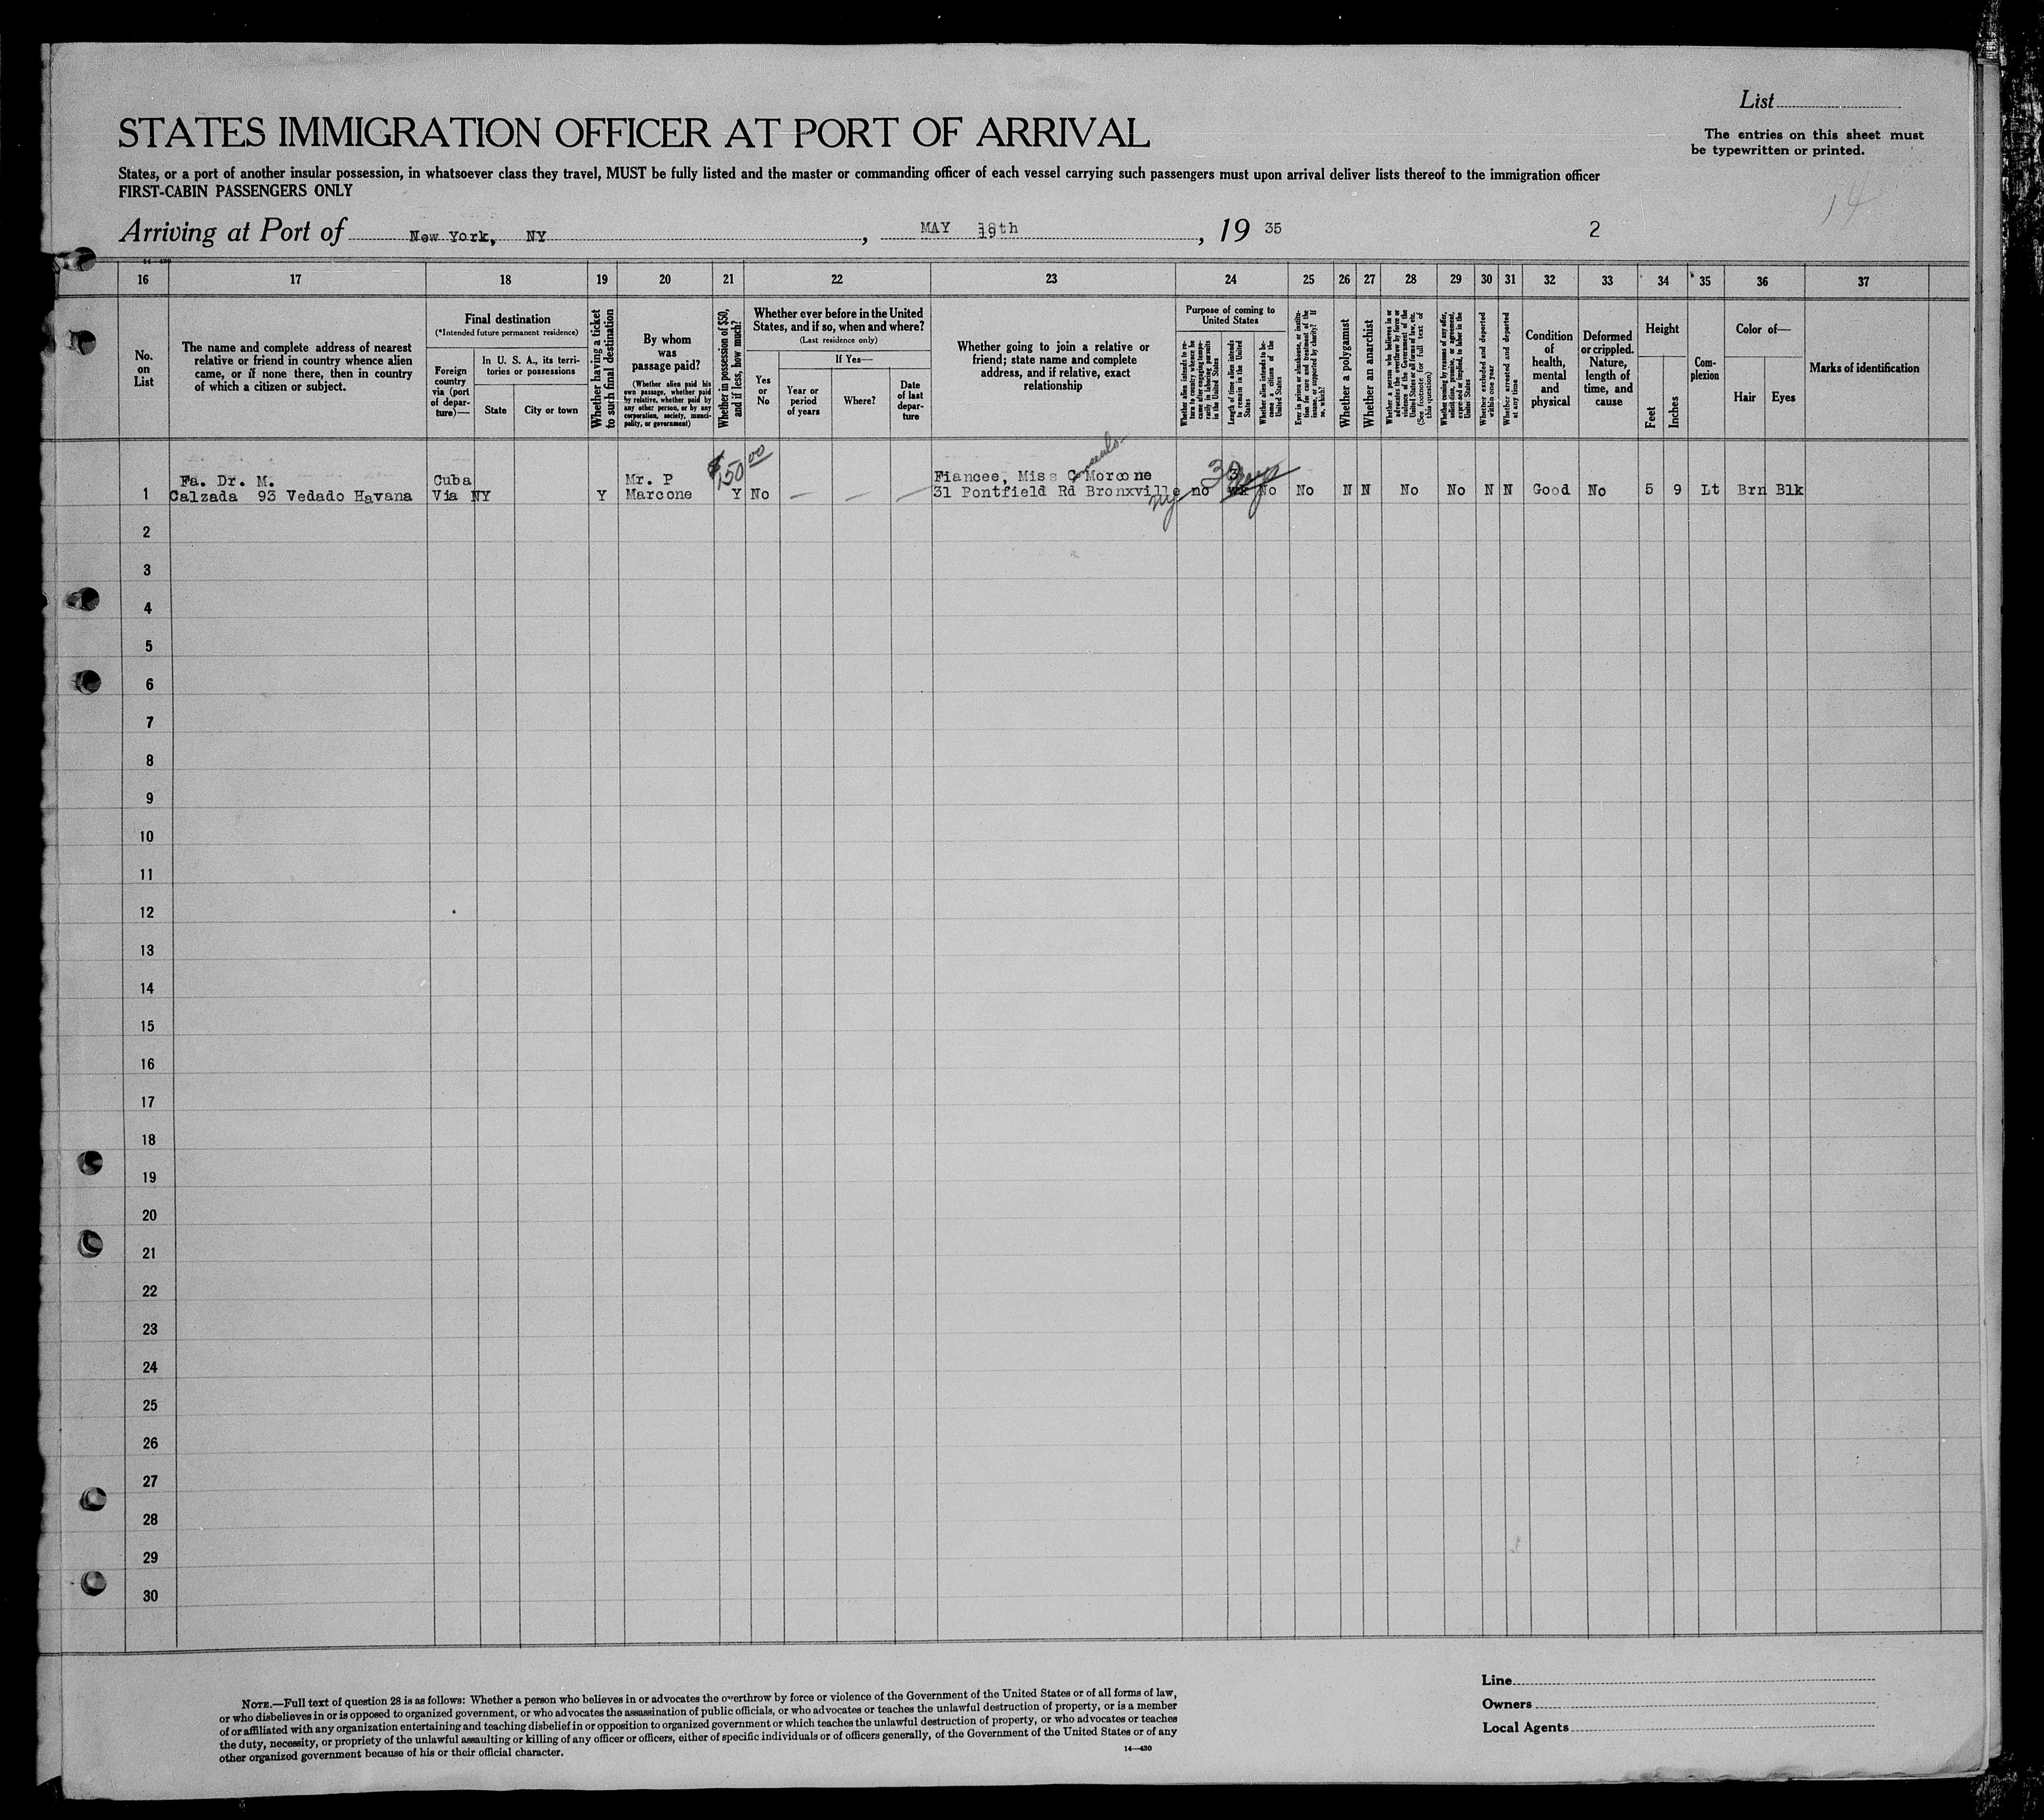 List
STATES IMMIGRATION OFFICER AT PORT OF ARRIVAL
The entries on this sheet must
be typewritten or printed.
States, or a port of another insular possession, in whatsoever class they travel, MUST be fully listed and the master or commanding officer of each vessel carrying such passengers must upon arrival deliver lists thereof to the immigration officer
FIRST-CABIN PASSENGERS ONLY
14
Arriving at Port of New York, NY, MAY 19th, 19 35
2
16 17 18 19 20 21 22 23 24 25 26 27 28 29 30 31 32 33 34 35 36 37
No.
on
List
The name and complete address of nearest
relative or friend in country whence alien
came, or if none there, then in country
of which a citizen or subject.
Final destination
(*Intended future permanent residence)
Foreign
country
via (port
of depar-
ture)—
In U. S. A., its terri-
tories or possessions
State
City or town
Whether having a ticket
to such final destination
By whom
was
passage paid?
(Whether alien paid his
own passage, whether paid
by relative, whether paid by
any other person, or by any
corporation, society, munici-
pality, or government)
Whether in possession of $50,
and if less, how much?
Whether ever before in the United
States, and if so, when and where?
(Last residence only)
Yes
or
No
If Yes—
Year or
period
of years
Where?
Date
of last
depar-
ture
Whether going to join a relative or
friend; state name and complete
address, and if relative, exact
relationship
Purpose of coming to
United States
Whether alien intends to re-
turn to country whence he
came after engaging tempo-
rarily in laboring pursuits
in the United States
Length of time alien intends
to remain in the United
States
Whether alien intends to be-
come a citizen of the
United States
Ever in prison or almshouse, or institu-
tion for care and treatment of the
insane, or supported by charity? If
so, which?
Whether a polygamist
Whether an anarchist
Whether a person who believes in or
advocates the overthrow by force or
violence of the Government of the
United States or all forms of law, etc.
(See footnote for full text of
this question)
Whether coming by reason of any offer,
solicitation, promise, or agreement,
expressed or implied, to labor in the
United States
Whether excluded and deported
within one year
Whether arrested and deported
at any time
Condition
of
health,
mental
and
physical
Deformed
or crippled.
Nature,
length of
time, and
cause
Height
Feet
Inches
Com-
plexion
Color of—
Hair
Eyes
Marks of identification
Fa. Dr. M. Cuba Mr. P $150.00 Fiancee, Miss C Morcone 3
1 Calzada 93 Vedado Havana Via NY Y Marcone Y No — — — 31 Pontfield Rd Bronxville NY no wk No No N N No No N N Good No 5 9 Lt Brn Blk
2
3
4
5
6
7
8
9
10
11
12
13
14
15
16
17
18
19
20
21
22
23
24
25
26
27
28
29
30
NOTE.—Full text of question 28 is as follows: Whether a person who believes in or advocates the overthrow by force or violence of the Government of the United States or of all forms of law,
or who disbelieves in or is opposed to organized government, or who advocates the assassination of public officials, or who advocates or teaches the unlawful destruction of property, or is a member
of or affiliated with any organization entertaining and teaching disbelief in or opposition to organized government or which teaches the unlawful destruction of property, or who advocates or teaches
the duty, necessity, or propriety of the unlawful assaulting or killing of any officer or officers, either of specific individuals or of officers generally, of the Government of the United States or of any
other organized government because of his or their official character.
14—430
Line
Owners
Local Agents